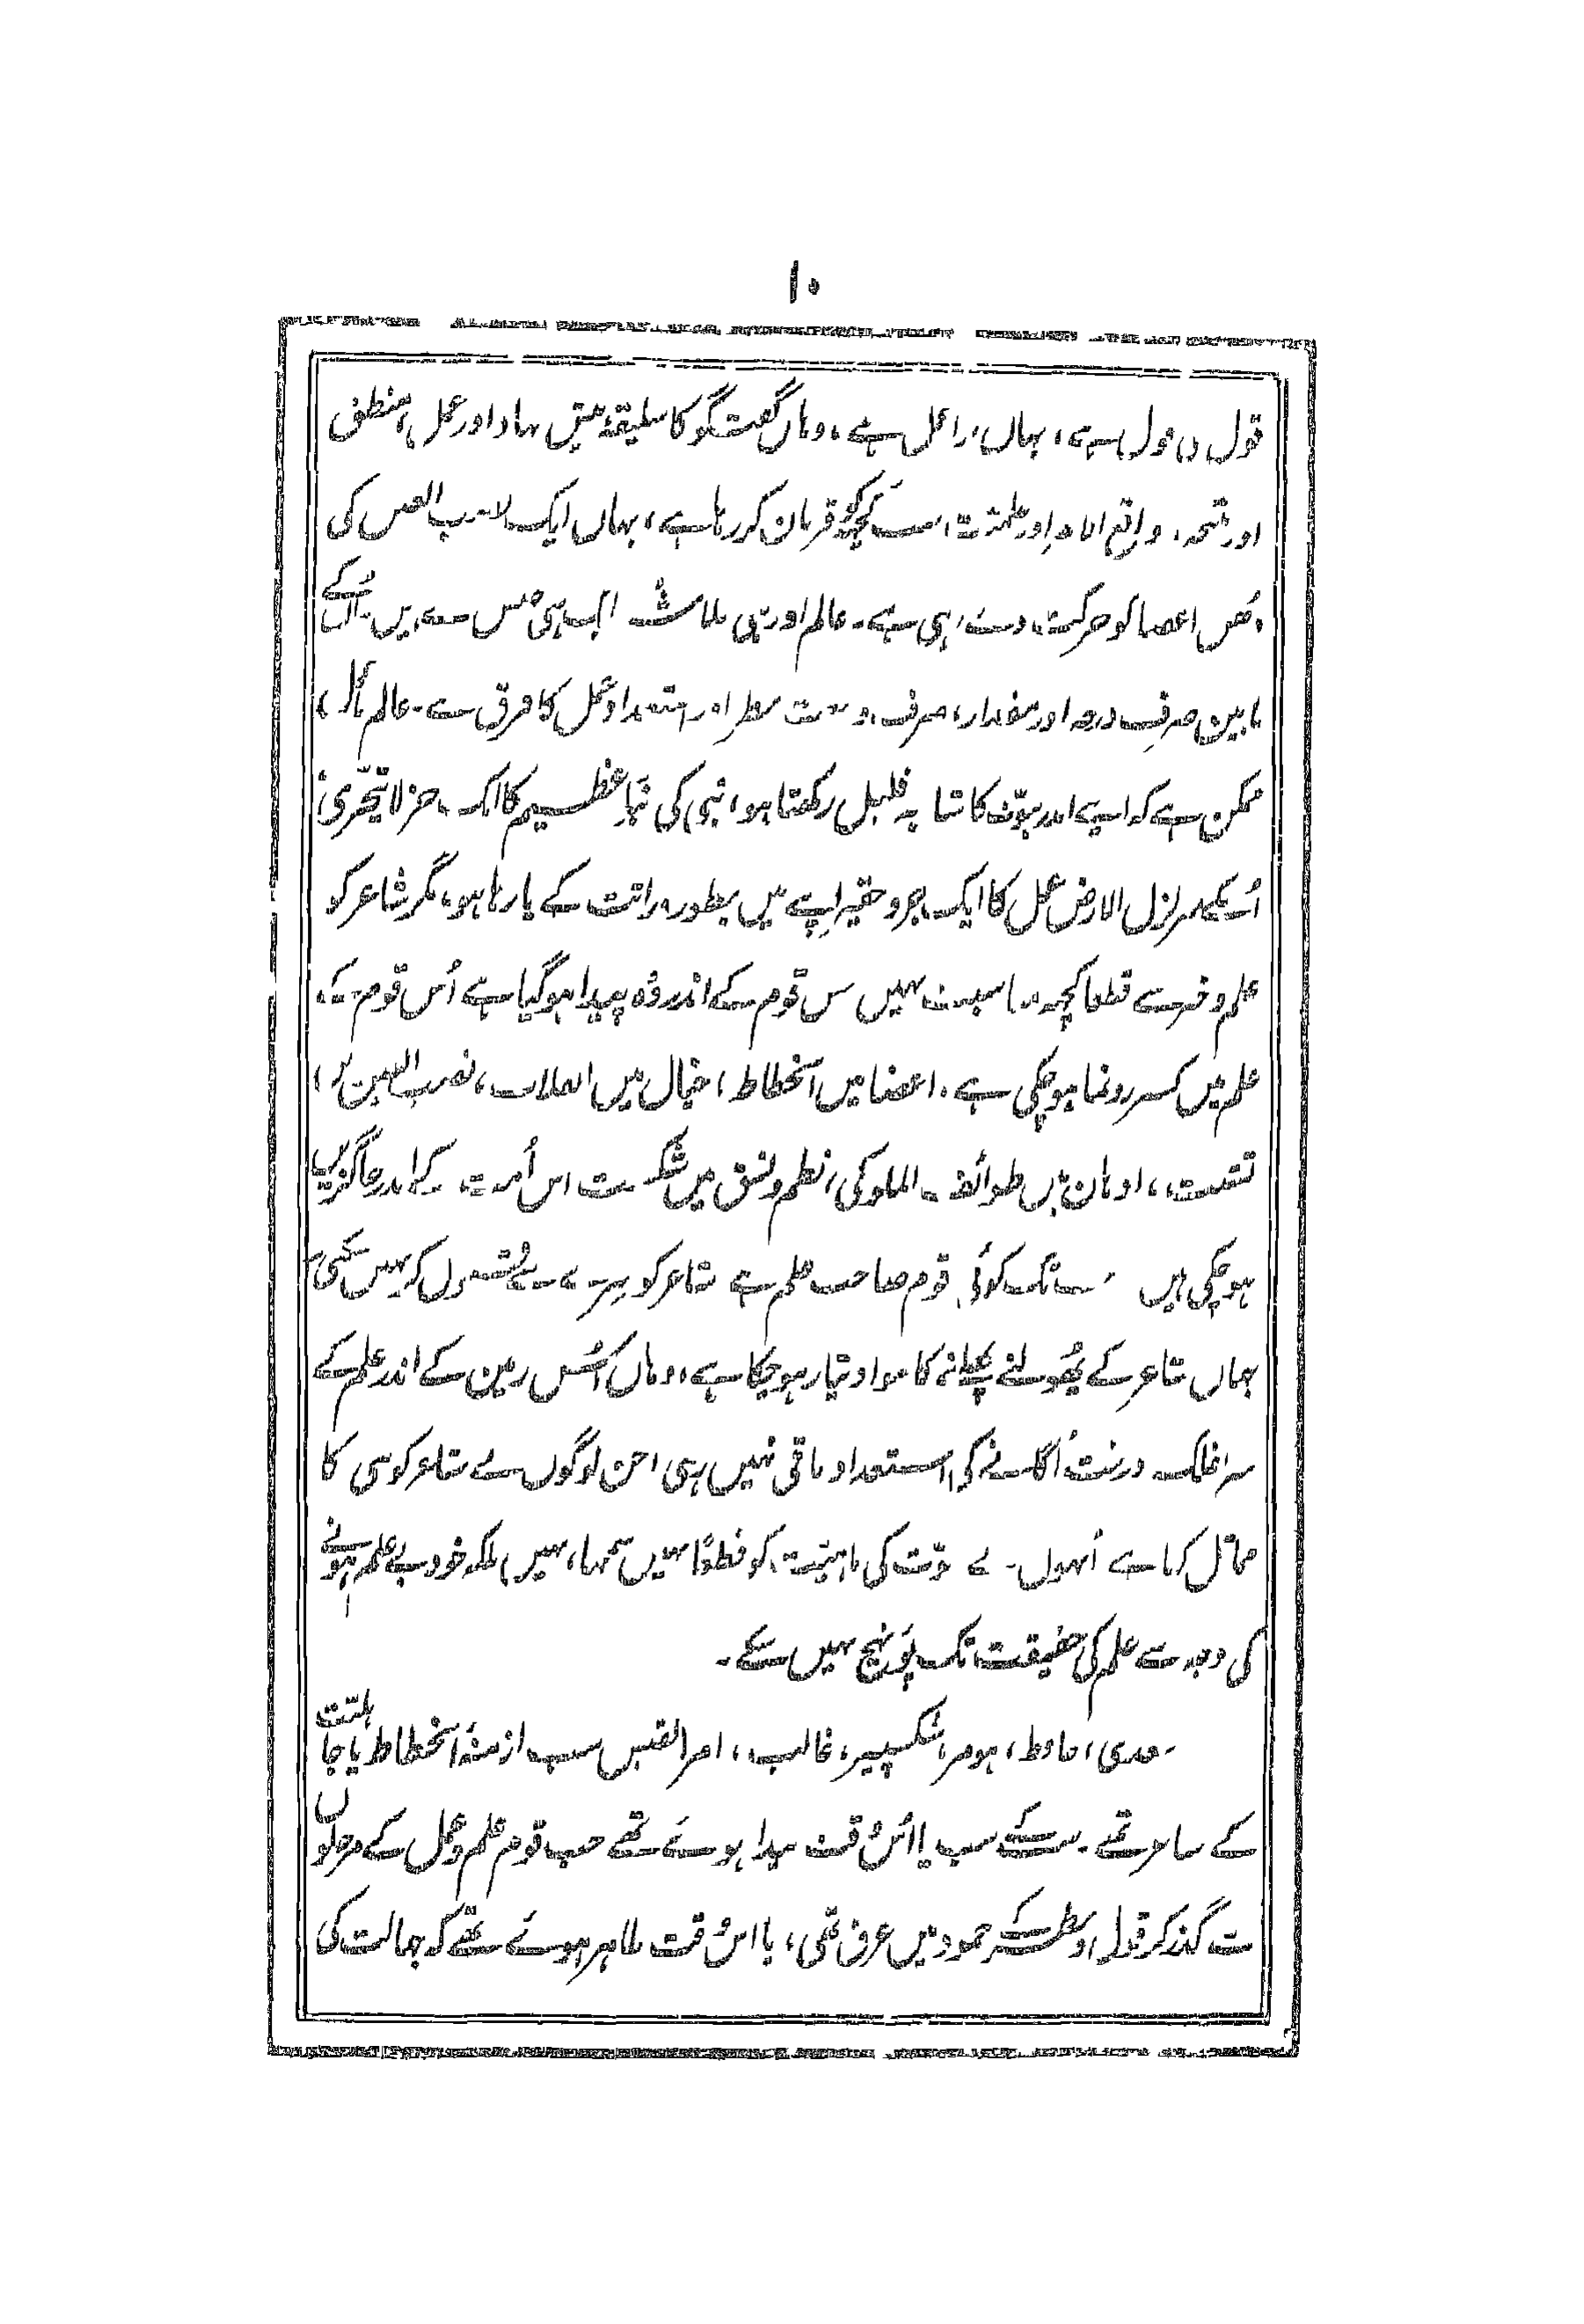 ۱۰
قول ہی قول ہے، یہاں سرا عمل ہے، وہاں گفتگو کا سلیقہ متین بنیاد اور عمل، منطق
اور نتیجہ، واقع الامر اور علمیت سب کچھ قربان کر رہا ہے، یہاں ایک نصب العین کی
اعضا کو حرکت دے رہی ہے۔ عالم اور نبی بلاشبہ ایک ہی جنس سے ہیں۔ اُن کے
مابین صرف درجہ اور مقدار، صرف وسعت نظر اور استعداد عمل کا فرق ہے۔ عالم
ممکن ہے کہ اپنے اندر نبوّت کا شائبہ قلیل رکھتا ہو، نبی کی نبإ عظیم کا ایک جزء لا یتجزی
اُسکے زلزل الارض عمل کا ایک جزو حقیر اپنے میں بطور وراثت کے پا رہا ہو، مگر شاعر کو
علم و خبر سے قطعاً کچھ مناسبت نہیں جس قوم کے اندر وُہ پیدا ہو گیا ہے اُس قوم کے
علم میں کسر رونما ہو چکی ہے۔ اعضا میں انحطاط، خیال میں نصب العین
تشتت، اذہان میں طوائف الملوکی، نظم و نسق میں شکست اس اُمت کے اندر جاگزیں
ہو چکی ہیں جب تک کوئی قوم صاحب علم ہے شاعر کو نہیں سکتی
جہاں شاعر کے پھولنے پھلنے کا مواد تیار ہو چکا ہے، وہاں اُس زمین کے اندر علم کے
سرافلک درخت اُگانے کی استعداد باقی نہیں رہی جن لوگوں نے شاعر کو نبی کا
مماثل کہا ہے اُنہوں نے نبوّت کی ماہیّت کو قطعاً نہیں سمجھا، نہیں بلکہ خود بے علم ہونے
کی وجہ سے علم کی حقیقت تک پہنچ نہیں سکے۔
سعدی، حافظ، ہومر، شکسپیر، غالب، امرالقیس سب ازمنۂ انحطاط یا جاہلیّت
کے شاعر تھے۔ سب کے سب یا اُس وقت پیدا ہوئے تھے جب قوم علم و عمل کے مرحلوں
سے گذر کر قول اور نظر کے جمود میں غرق تھی، یا اس وقت ظاہر ہوئے تھے کہ جہالت کی